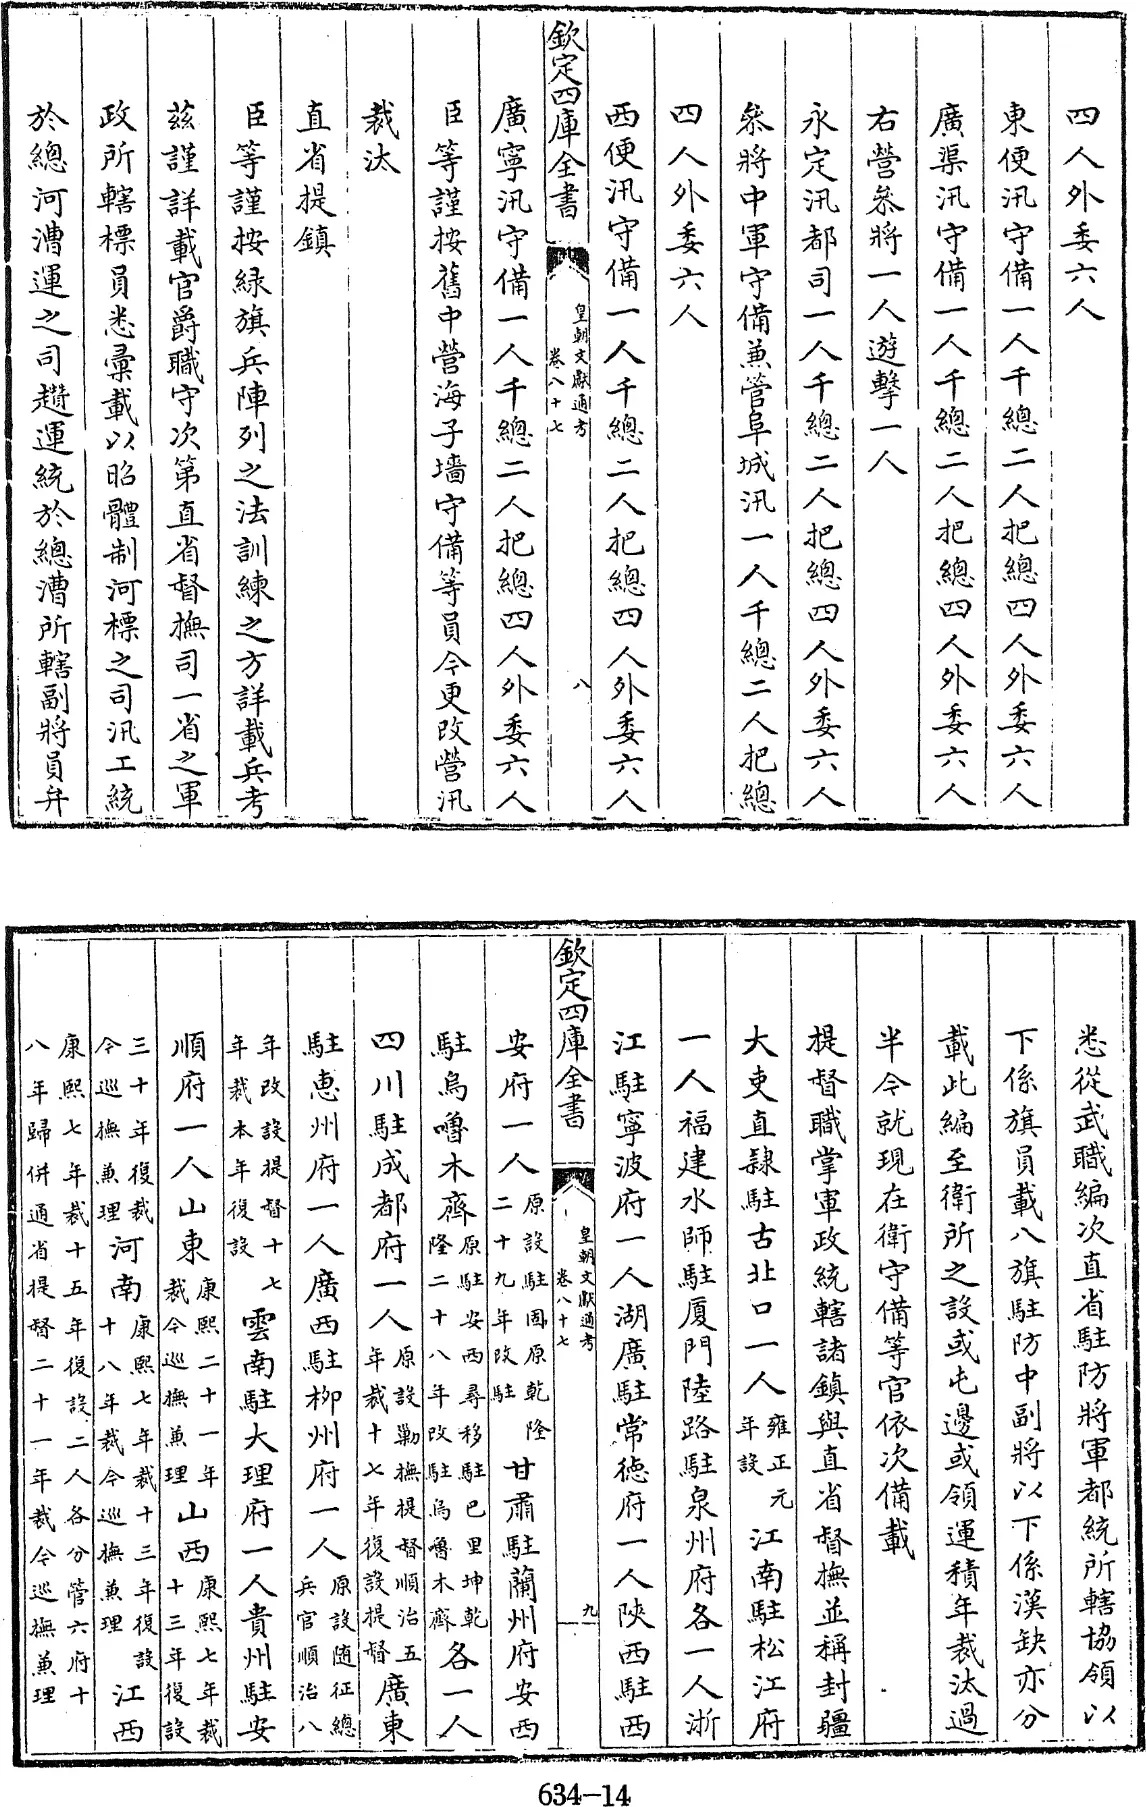 四人外委六人
東便汛守備一人千總二人把總四人外委六人
廣渠汛守備一人千總二人把總四人外委六人
右營叅將一人遊擊一人
永定汛都司一人千總二人把總四人外委六人
叅將中軍守備兼管阜城汛一人千總二人把總
四人外委六人
西便汛守備一人千總二人把總四人外委六人
欽定四庫全書
皇朝文獻通考
卷八十七
八
廣寧汛守備一人千總二人把總四人外委六人
臣等謹按舊中營海子墻守備等員今更改營汛
裁汰
直省提鎮
臣等謹按綠旗兵陣列之法訓練之方詳載兵考
茲謹詳載官爵職守次第直省督撫司一省之軍
政所轄標員悉彙載以昭體制河標之司汛工統
於總河漕運之司趲運統於總漕所轄副將員弁
悉從武職編次直省駐防將軍都統所轄協領以
下係旗員載八旗駐防中副將以下係漢缺亦分
載此編至衛所之設或屯邊或領運積年裁汰過
半今就現在衛守備等官依次備載
提督職掌軍政統轄諸鎮與直省督撫並稱封疆
大吏直隸駐古北口一人雍正元年設江南駐松江府
一人福建水師駐厦門陸路駐泉州府各一人浙
江駐寧波府一人湖廣駐常德府一人陝西駐西
欽定四庫全書
皇朝文獻通考
卷八十七
九
安府一人原設駐固原乾隆二十九年改駐甘肅駐蘭州府安西
駐烏嚕木齊原駐安西尋移駐巴里坤乾隆二十八年改駐烏嚕木齊各一人
四川駐成都府一人原設勦撫提督順治五年裁十七年復設提督廣東
駐惠州府一人廣西駐柳州府一人原設隨征總兵官順治八
年改設提督十七年裁本年復設雲南駐大理府一人貴州駐安
順府一人山東康熙二十一年裁今巡撫兼理山西康熙七年裁十三年復設
三十年復裁今巡撫兼理河南康熙七年裁十三年復設十八年裁今巡撫兼理江西
康熙七年裁十五年復設二人各分管六府十八年歸併通省提督二十一年裁今巡撫兼理
634-14